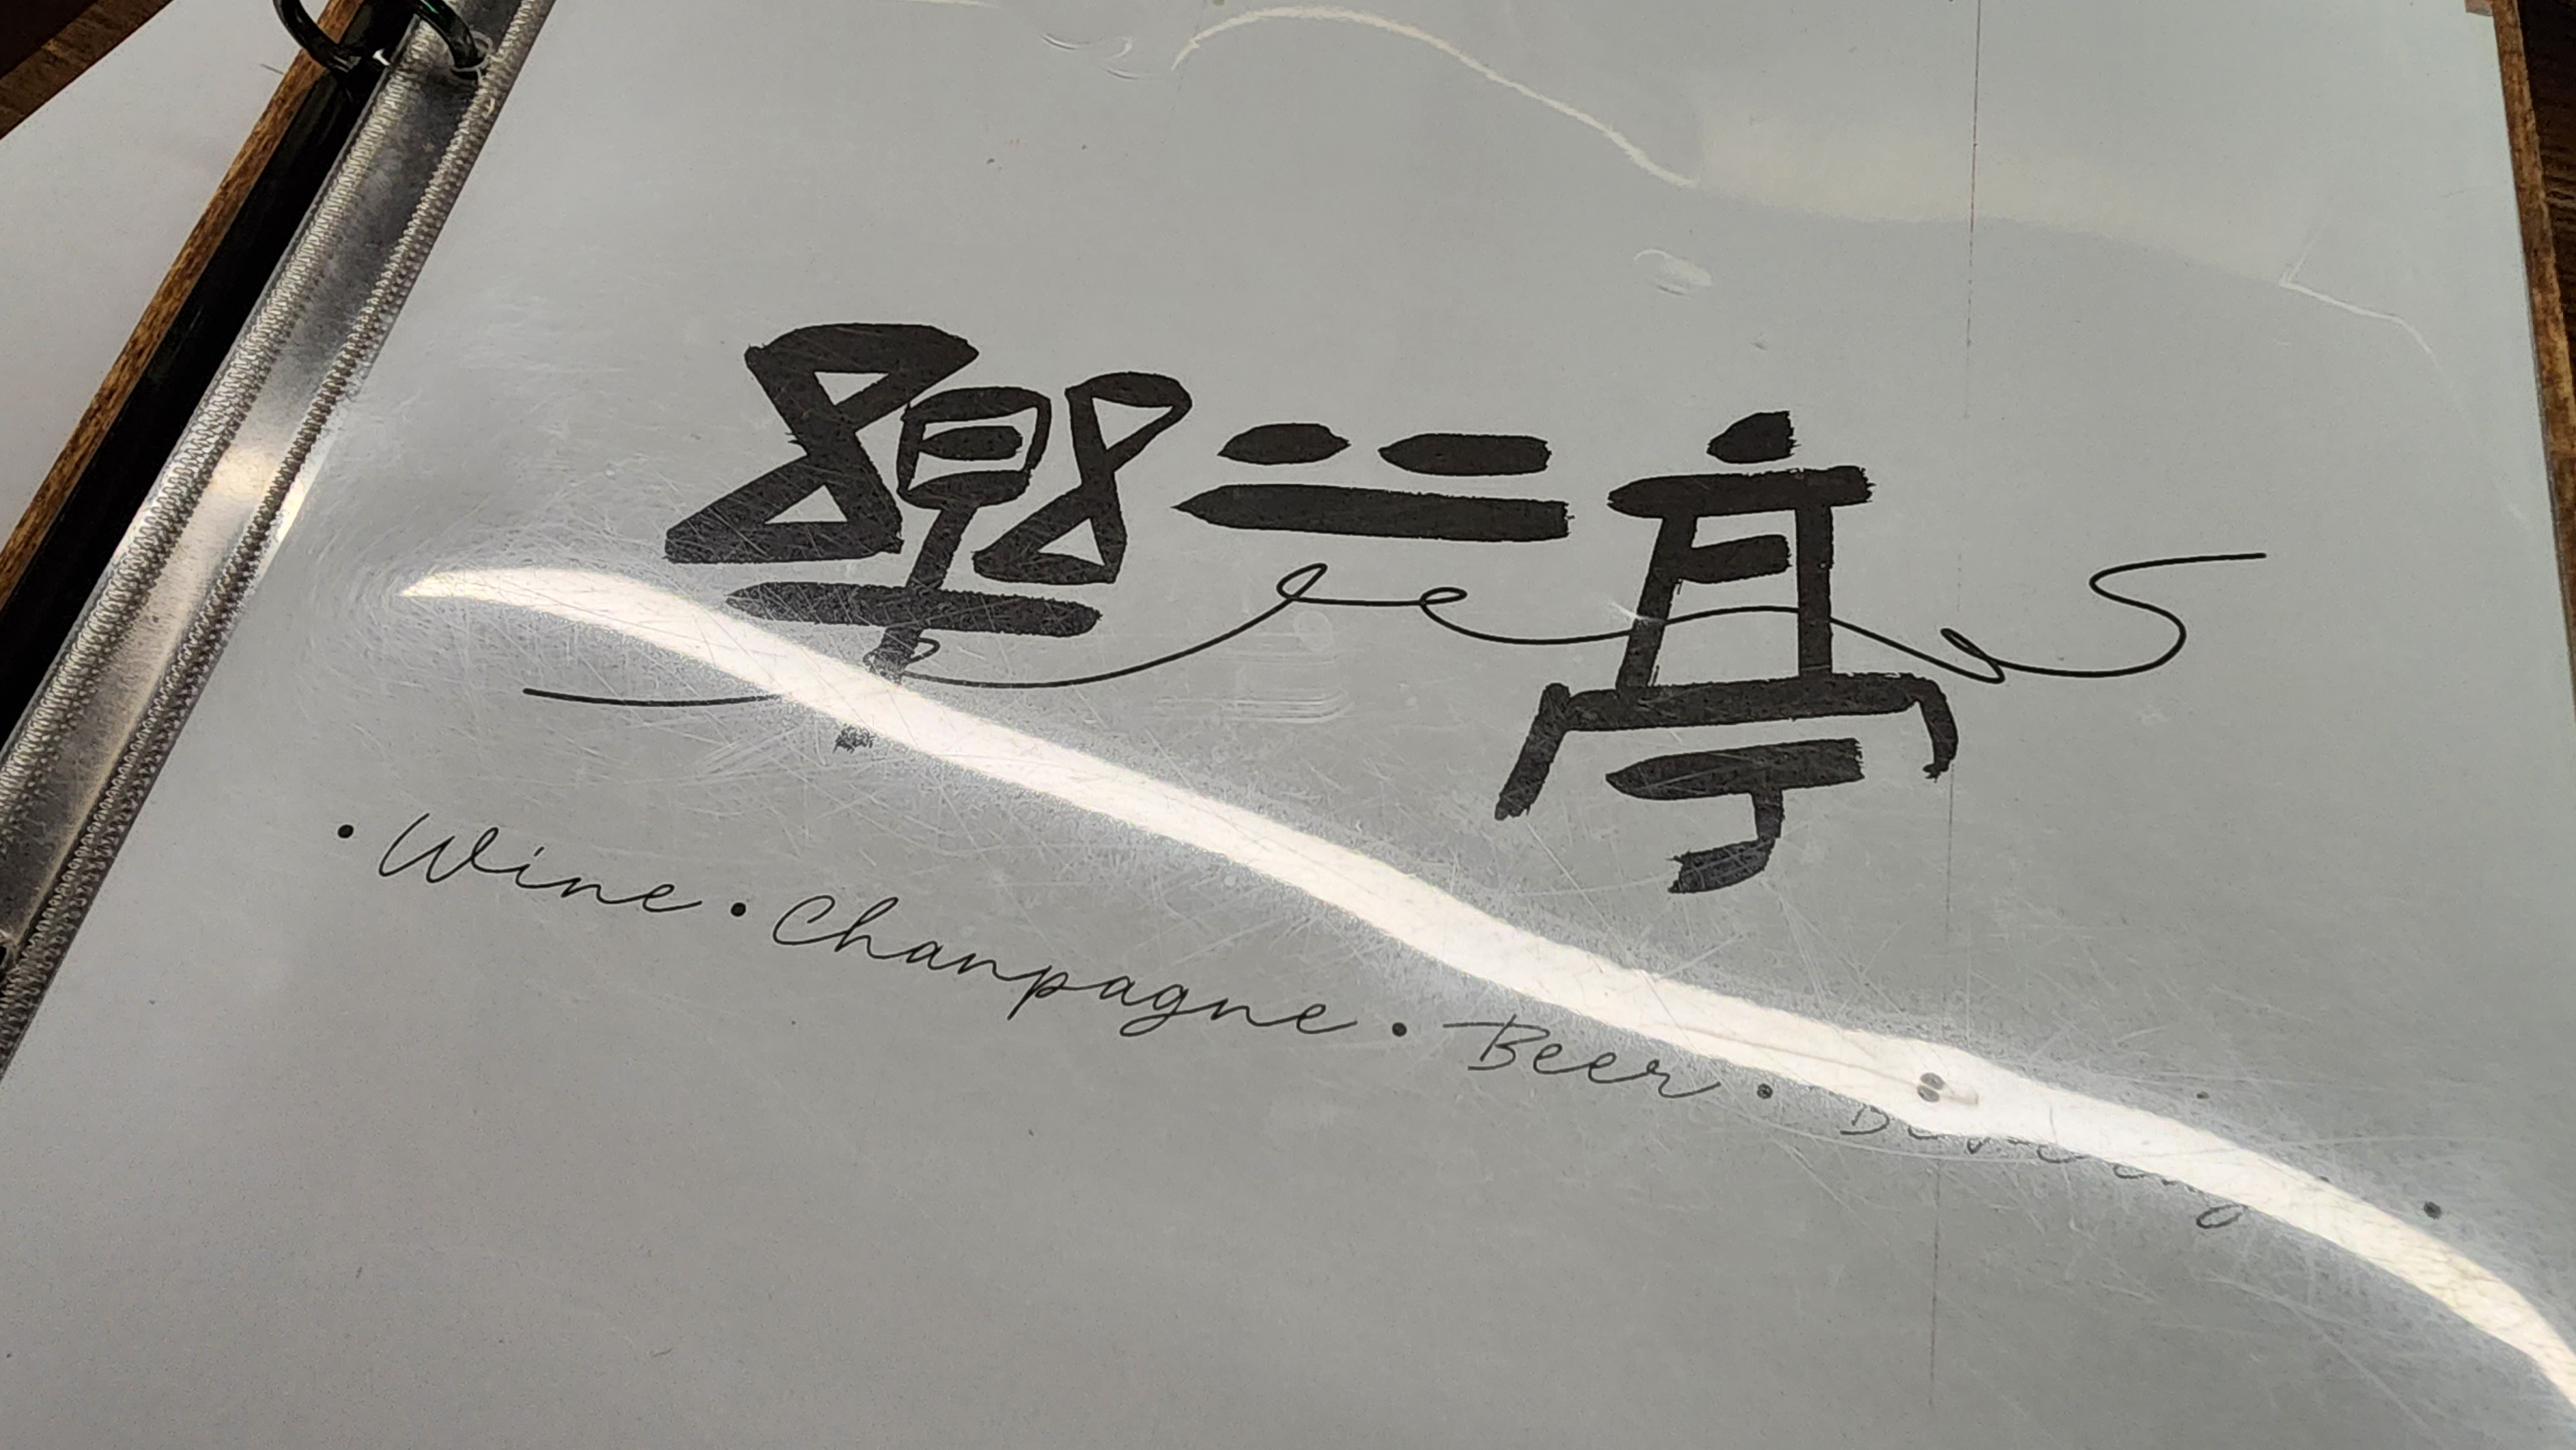 樂 亭
• Wine • Chanpagne • Beer •